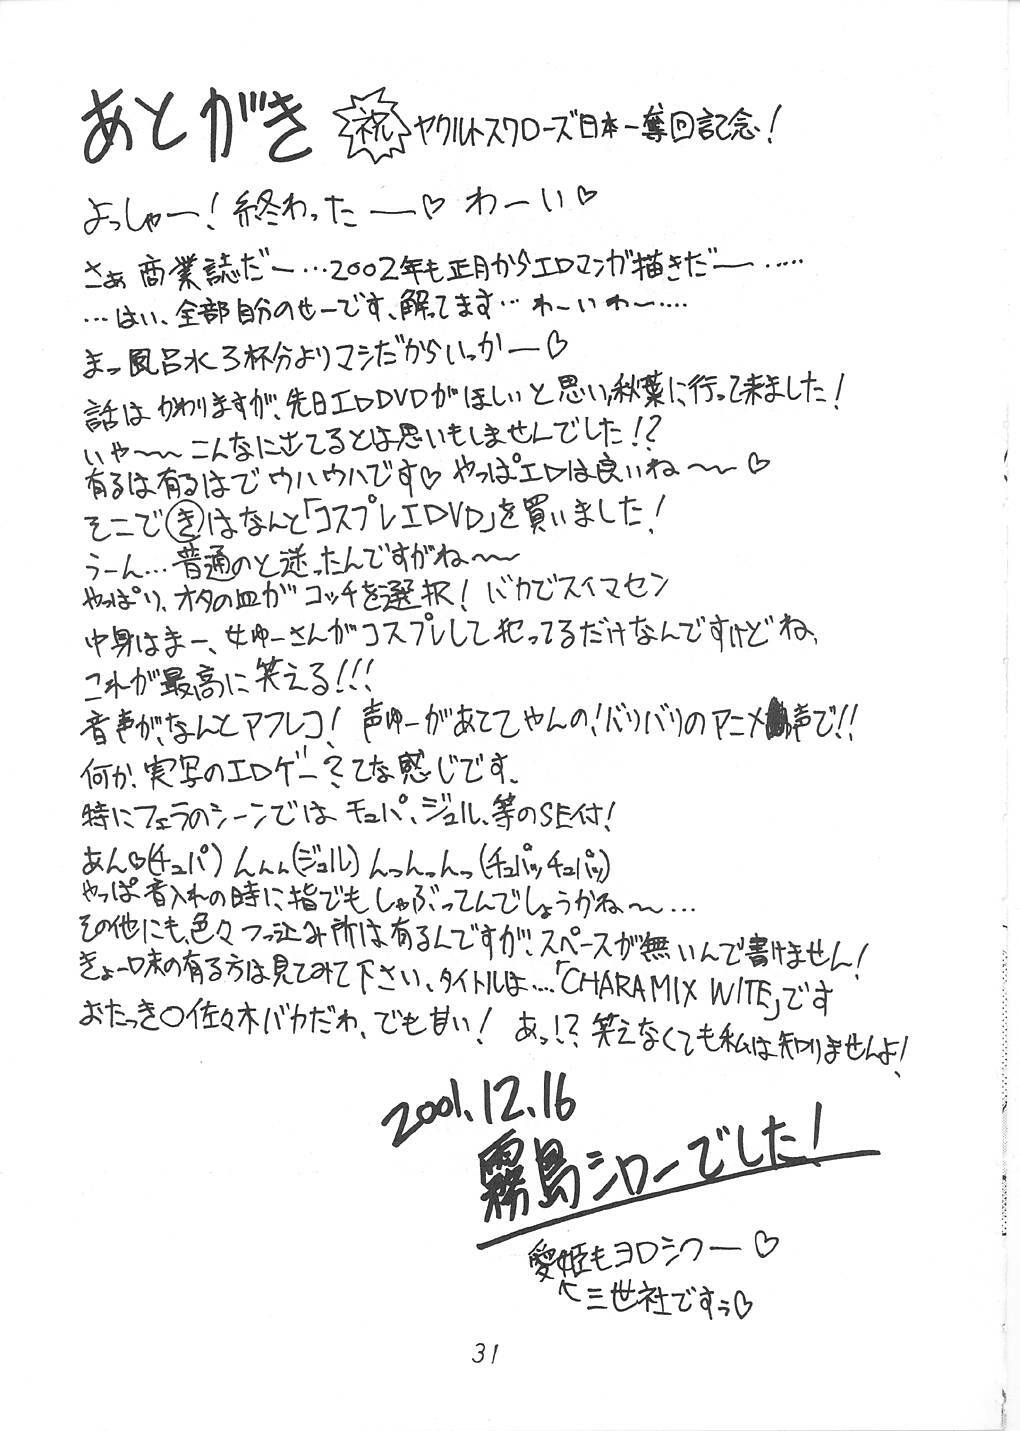 あとがき 祝 ヤクルトスワローズ日本一奪回記念!
よっしゃー!終わったー♡わーい♡
さぁ商業誌だー…2002年も正月からエロマンガ描きだー……
…はい、全部自分のせーです、解ってます…わーいわー……
まっ風呂水3杯分よりマシだからいっかー♡
話はかわりますが、先日エロDVDがほしいと思い、秋葉に行って来ました!
いや〜〜こんなにさてるとは思いもしませんでした!?
有るは有るはでウハウハです♡やっぱエロは良いね〜〜♡
そこで(き)はなんと「コスプレエロDVD」を買いました!
うーん…普通のと迷ったんですがね〜〜
やっぱり、オタの血がコッチを選択!バカでスイマセン
中身はまー、女ゆーさんがコスプレして犯ってるだけなんですけどね、
これが最高に笑える!!!
音声が、なんとアフレコ!声ゆーがあててやんの!バリバリのアニメ声で!!
何か、実写のエロゲー?てな感じです、
特にフェラのシーンではチュパ、ジュル、等のSE付!
あん♡(チュパ)んんん(ジュル)んっんっんっ(チュパッチュパッ)
やっぱ音入れの時に指でもしゃぶってんでしょうかね〜…
その他にも、色々つっ込み所は有るんですが、スペースが無いんで書けません!
きょー味の有る方は見てみて下さい、タイトルは…「CHARAMIX WITE」です
おたっき○佐々木バカだわ、でも甘い!あっ!?笑えなくても私は知りませんよ!
2001.12.16
霧島シローでした!
愛姫もヨロシクー♡
↖三世社ですぅ♡
31